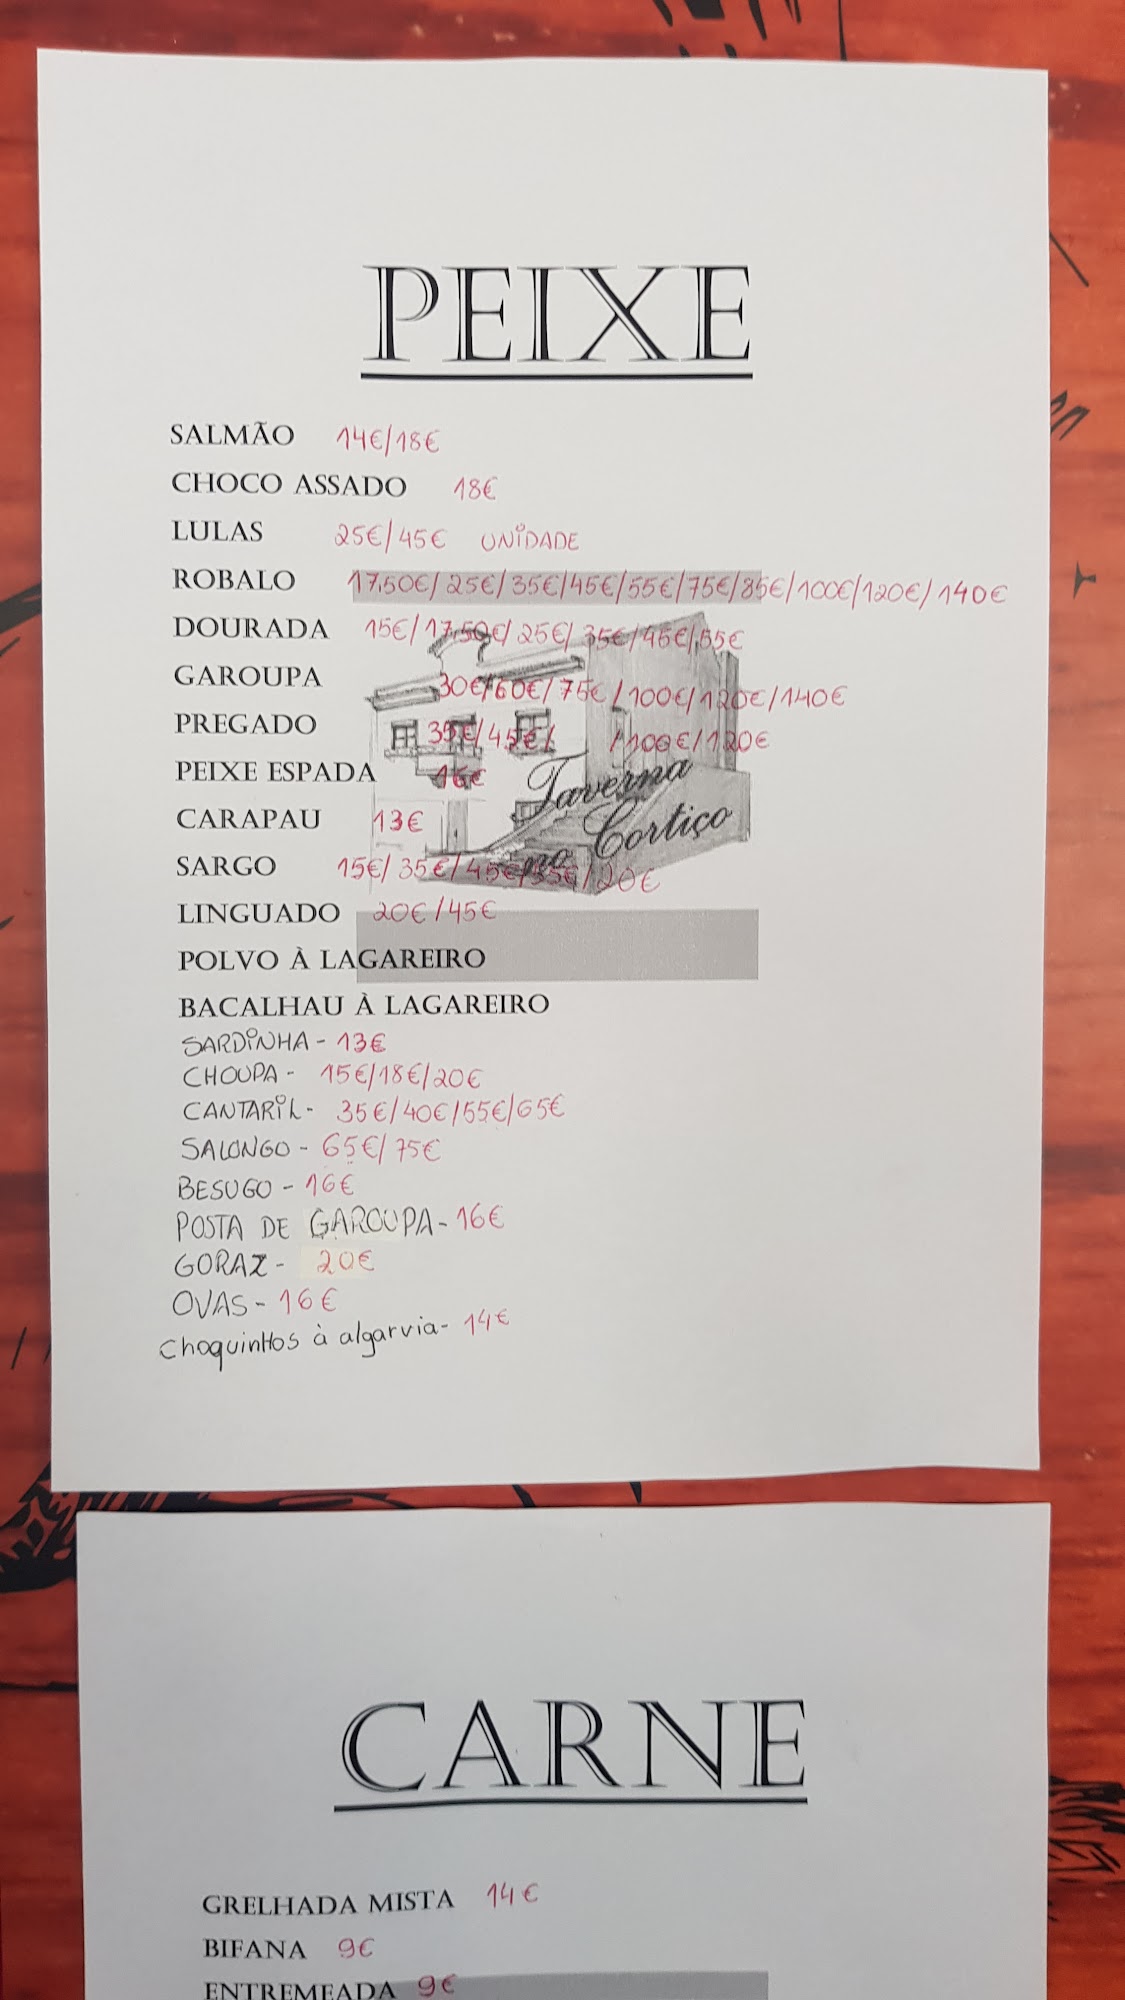 PEIXE
SALMÃO 14€/18€
CHOCO ASSADO 18€
LULAS 25€/45€ UNIDADE
ROBALO 17,50€/25€/35€/45€/55€/75€/85€/100€/120€/140€
DOURADA 15€/17,50€/25€/35€/45€/55€
GAROUPA 30€/60€/75€/100€/120€/140€
PREGADO 35€/45€/ /100€/120€
PEIXE ESPADA 16€
CARAPAU 13€
Taverna
no Cortiço
SARGO 15€/35€/45€/55€/20€
LINGUADO 20€/45€
POLVO À LAGAREIRO
BACALHAU À LAGAREIRO
SARDINHA - 13€
CHOUPA - 15€/18€/20€
CANTARIL - 35€/40€/55€/65€
SALONGO - 65€/75€
BESUGO - 16€
POSTA DE GAROUPA - 16€
GORAZ - 20€
OVAS - 16€
choquinhos à algarvia - 14€
CARNE
GRELHADA MISTA 14€
BIFANA 9€
ENTREMEADA 9€